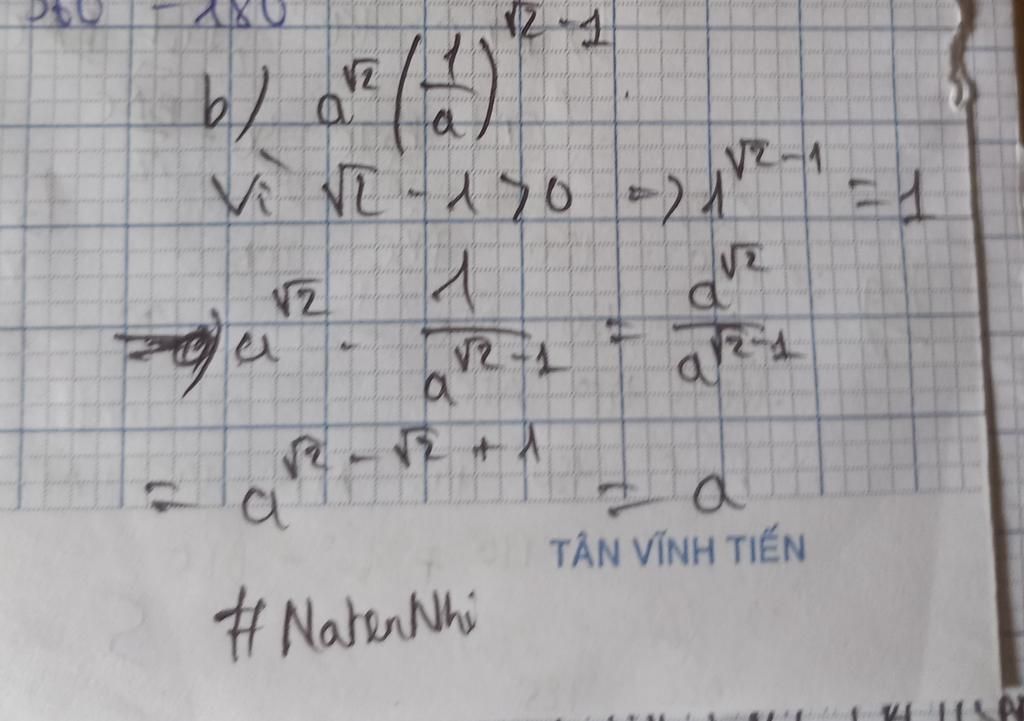 360 - 180
b) a^√2 (1/a)^√2 - 1
Vì √2 - 1 > 0 => 1^√2 - 1 = 1
=> a^√2 . 1/a^√2 - 1 = a^√2/a^√2 - 1
= a^√2 - √2 + 1 = a
TÂN VĨNH TIẾN
#NatenNhi